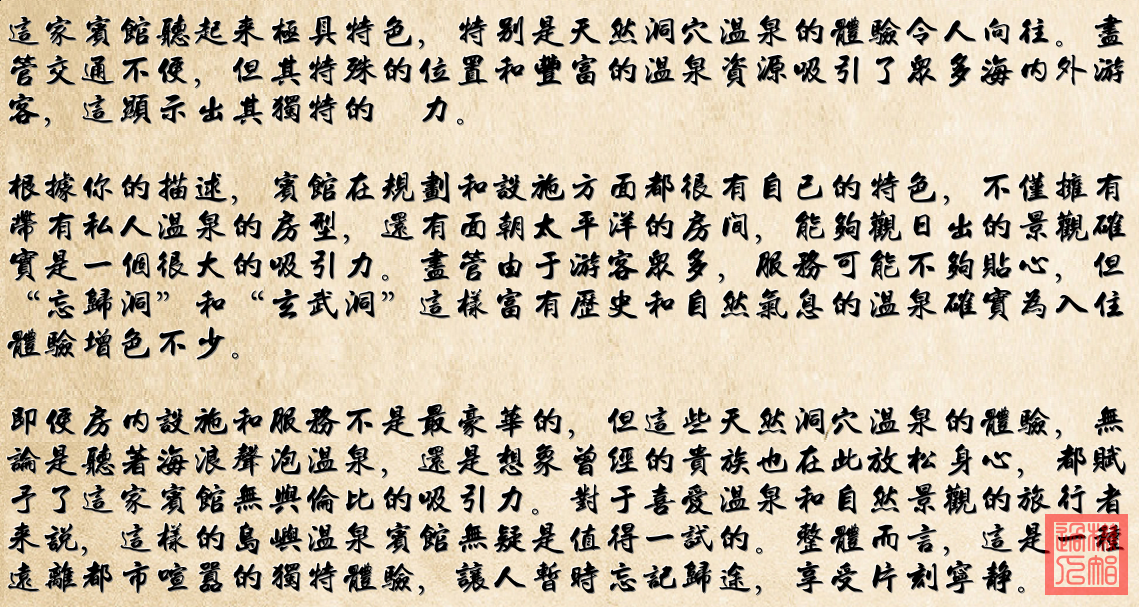 這家賓館聽起来極具特色，特别是天然洞穴温泉的體驗令人向往。盡
管交通不便，但其特殊的位置和豐富的温泉資源吸引了眾多海内外游
客，這顯示出其獨特的　力。
根據你的描述，賓館在規劃和設施方面都很有自己的特色，不僅擁有
帶有私人温泉的房型，還有面朝太平洋的房间，能夠觀日出的景觀確
實是一個很大的吸引力。盡管由于游客眾多，服務可能不夠貼心，但
“忘歸洞”和“玄武洞”這樣富有歷史和自然氣息的温泉確實為入住
體驗增色不少。
即便房内設施和服務不是最豪華的，但這些天然洞穴温泉的體驗，無
論是聽著海浪聲泡温泉，還是想象曾經的貴族也在此放松身心，都賦
予了這家賓館無與倫比的吸引力。對于喜愛温泉和自然景觀的旅行者
来説，這樣的島嶼温泉賓館無疑是值得一試的。整體而言，這是一種
遠離都市喧囂的獨特體驗，讓人暫時忘記歸途，享受片刻寧静。